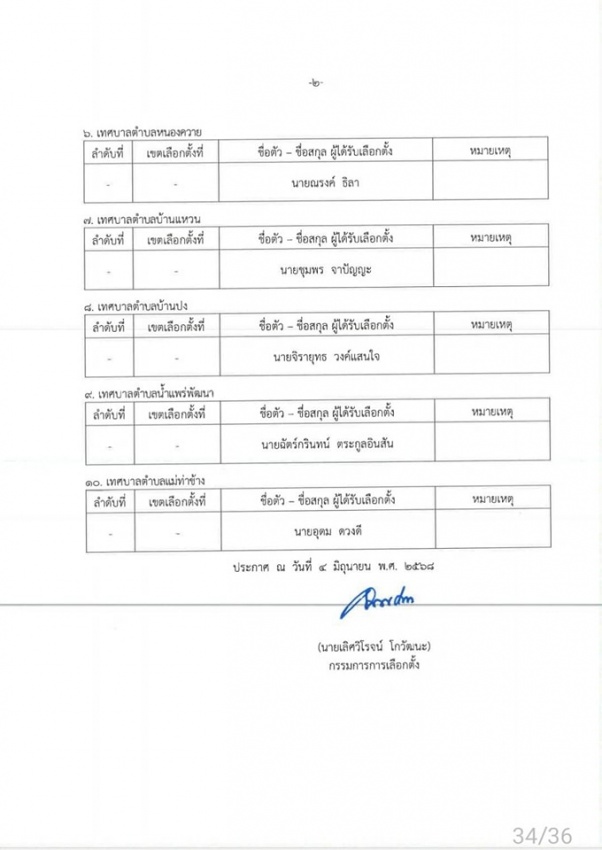 -๒-
๖. เทศบาลตำบลหนองควาย
ลำดับที่ เขตเลือกตั้งที่ ชื่อตัว – ชื่อสกุล ผู้ได้รับเลือกตั้ง หมายเหตุ
- - นายณรงค์ ธิลา
๗. เทศบาลตำบลบ้านแหวน
ลำดับที่ เขตเลือกตั้งที่ ชื่อตัว – ชื่อสกุล ผู้ได้รับเลือกตั้ง หมายเหตุ
- - นายชุมพร จาปัญญะ
๘. เทศบาลตำบลบ้านปง
ลำดับที่ เขตเลือกตั้งที่ ชื่อตัว – ชื่อสกุล ผู้ได้รับเลือกตั้ง หมายเหตุ
- - นายจิรายุทธ วงค์แสนใจ
๙. เทศบาลตำบลน้ำแพร่พัฒนา
ลำดับที่ เขตเลือกตั้งที่ ชื่อตัว – ชื่อสกุล ผู้ได้รับเลือกตั้ง หมายเหตุ
- - นายฉัตร์กรินทน์ ตระกูลอินสัน
๑๐. เทศบาลตำบลแม่ท่าช้าง
ลำดับที่ เขตเลือกตั้งที่ ชื่อตัว – ชื่อสกุล ผู้ได้รับเลือกตั้ง หมายเหตุ
- - นายอุดม ดวงดี
ประกาศ ณ วันที่ ๔ มิถุนายน พ.ศ. ๒๕๖๘
(นายเลิศวิโรจน์ โกวัฒนะ)
กรรมการการเลือกตั้ง
34/36